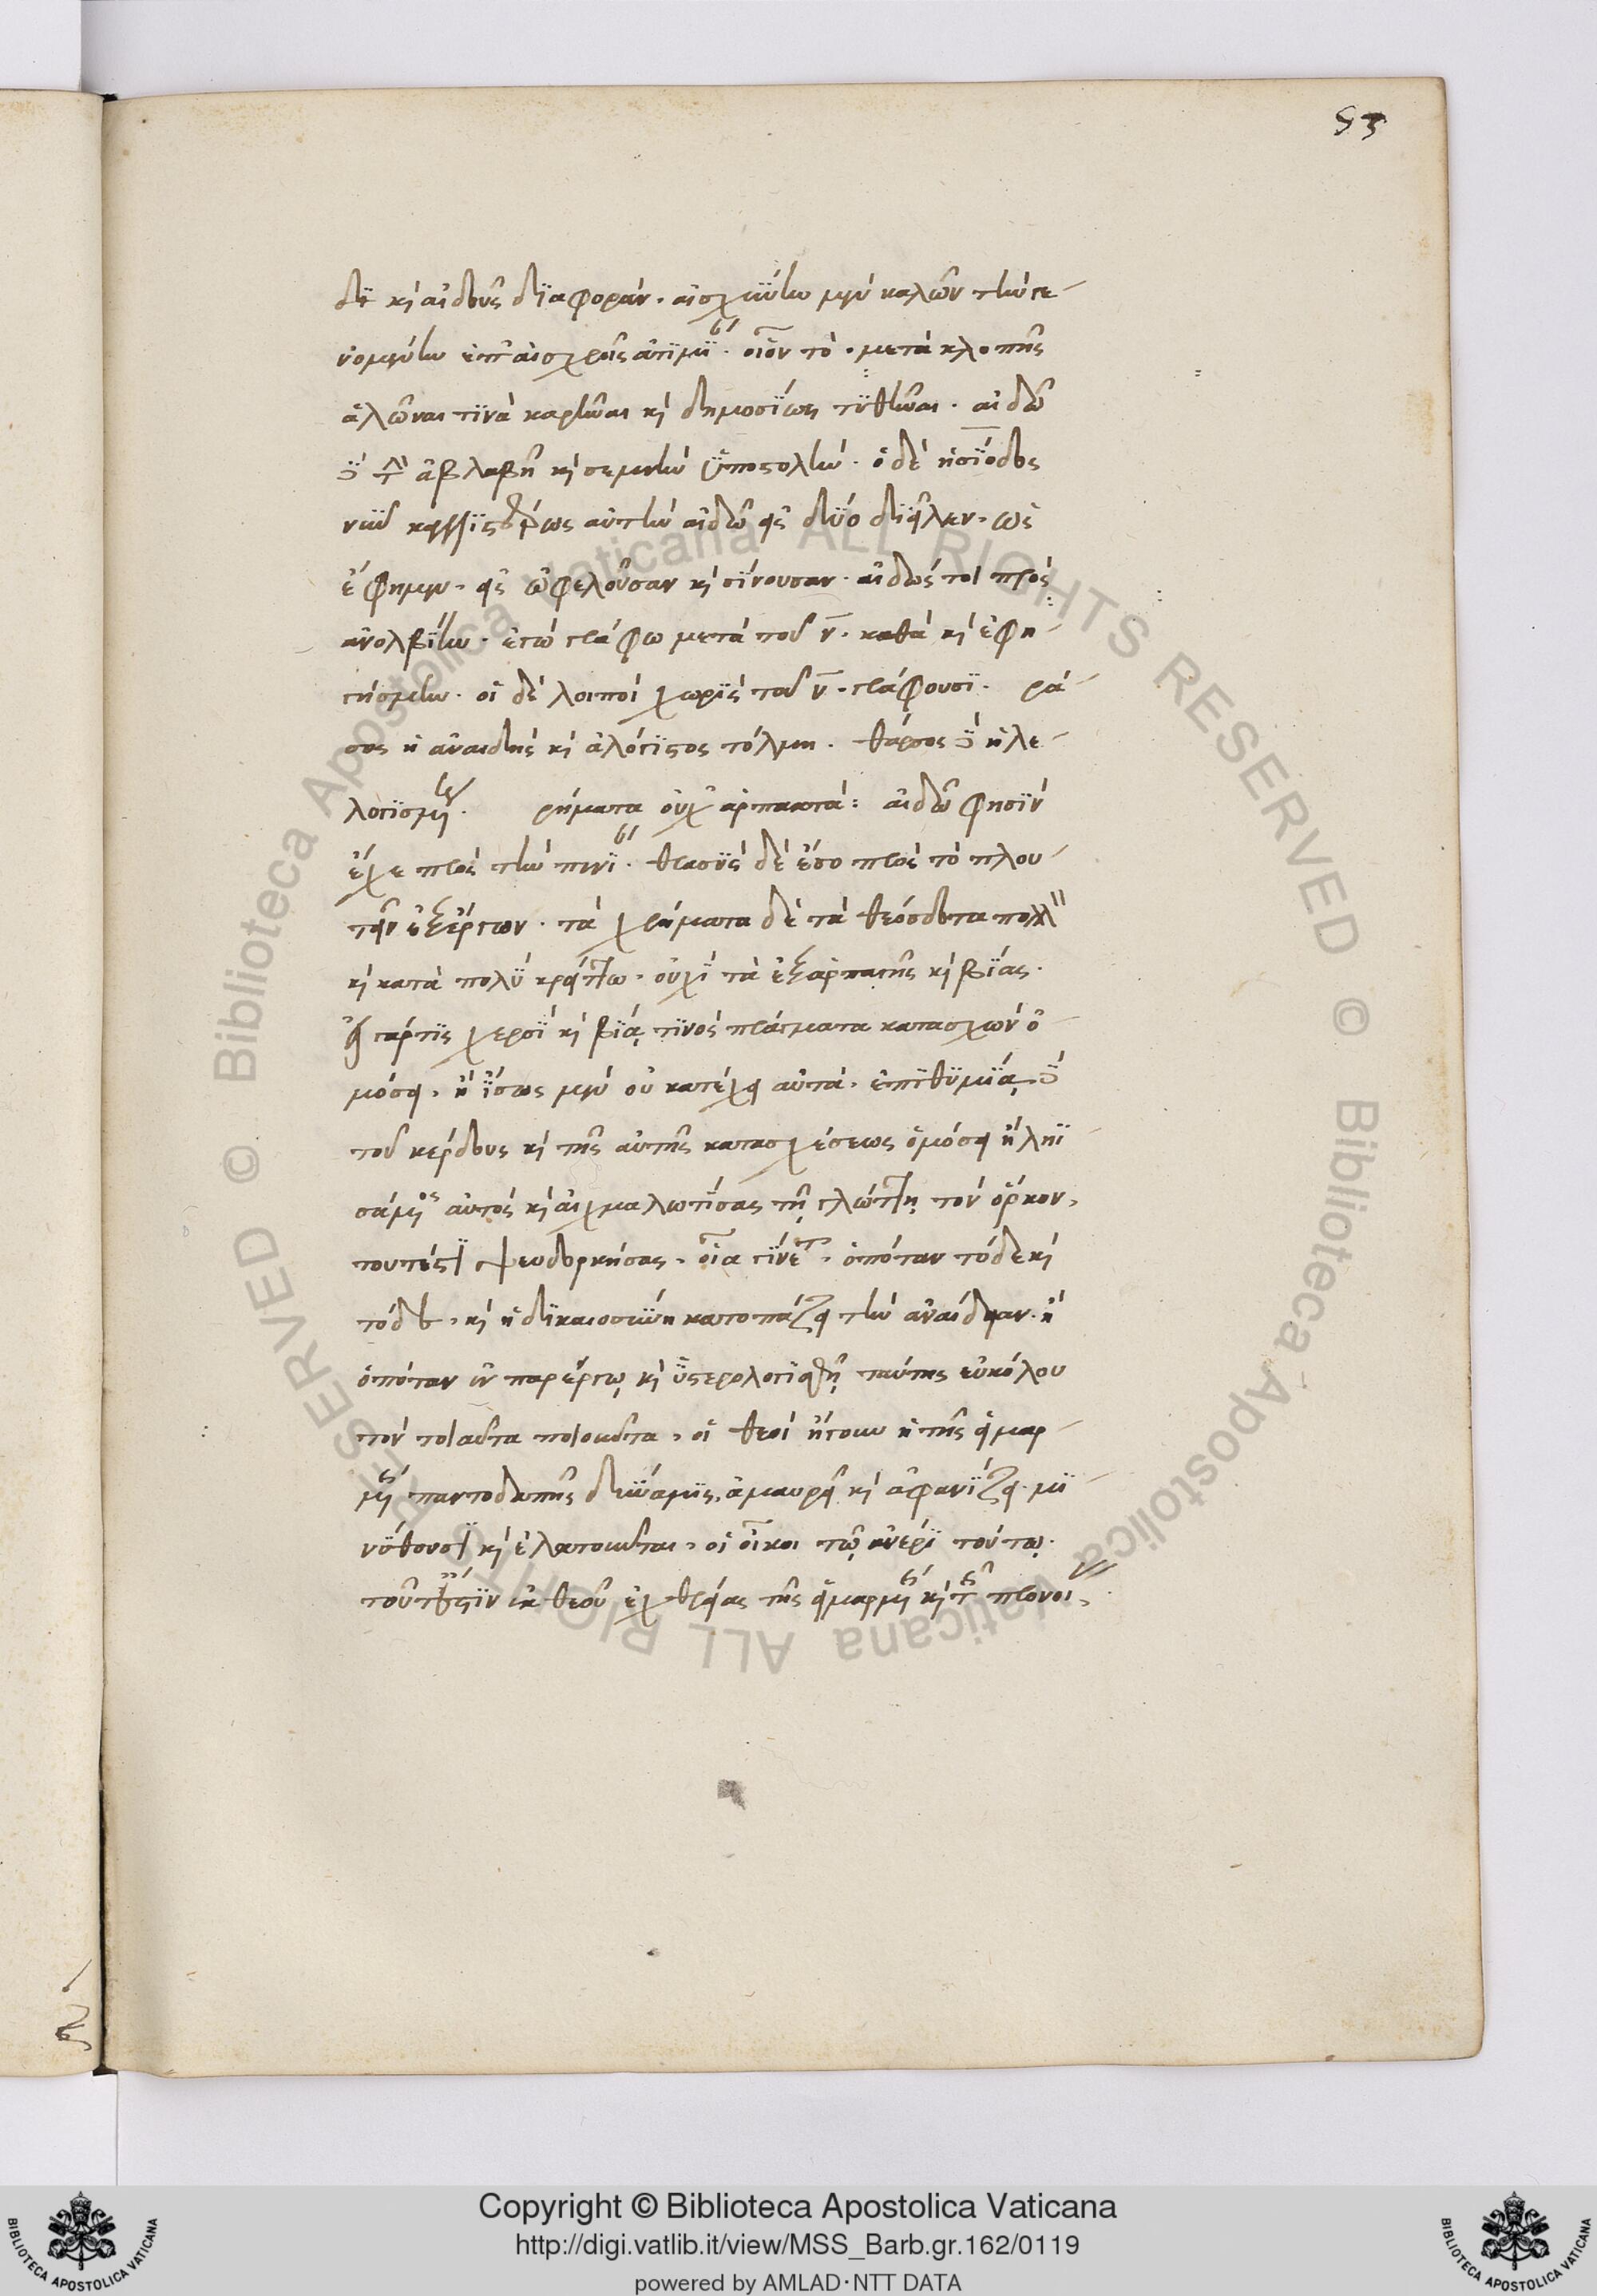 δὲ καὶ αἰδοῦς διαφοράν. αἰσχύνην μὲν καλῶν τὴν γε-
νομένην ἐπ' αἰσχροῖς ἀτιμίαν. οἷον τὸ. μετὰ κλοπῆς
ἁλῶναι τινὰ καρῆναι καὶ δημοσίως τυθῆναι. αἰδῶ
δὲ τὴν ἀβλαβῆ καὶ σεμνὴν ὑποστολήν. ὁ δὲ ἡσίοδος
νῦν αὐτὴν αἰδῶ εἰς δύο διεῖλεν. ὡς
ἔφημεν. εἰς ὠφελοῦσαν καὶ σίνουσαν. αἰδώς τοι πρὸς
ἀνολβίην. ἐγὼ γράφω μετὰ τοῦ ν. καθὰ καὶ ἐφη-
γησάμην. οἱ δὲ λοιποὶ χωρὶς τοῦ ν. γράφουσι. ρά-
σος ἡ ἀναιδὴς καὶ ἀλόγιστος τόλμη. θάρσος δὲ ἡ λε-
λογισμένη. ρήματα οὐχ ἁρπακτά: αἰδῶ φησὶν
ἔχε πρὸς τὴν πενίαν. θρασὺς δὲ ἔσο πρὸς τὸ πλου-
τεῖν ἐξ ἔργων. τὰ χρήματα δὲ τὰ θεόσδοτα πολλῶ
καὶ κατὰ πολὺ κρείττω. οὐχὶ τὰ ἐξ ἁρπαγῆς καὶ βίας.
εἰ γάρ τις χερσὶ καὶ βίᾳ τινὸς πράγματα κατασχὼν ὀ-
μόσει. ἢ ἴσως μὲν οὐ κατέχει αὐτά. ἐπιθυμίᾳ δὲ
τοῦ κέρδους καὶ τῆς αὐτῆς κατασχέσεως ὀμόσει ἢ ληϊ-
σάμενος αὐτὸς καὶ αἰχμαλωτίσας τῇ γλώττῃ τὸν ὅρκον,
τουτέστι ψευδορκήσας. οἷα γίνεται. ὁπόταν τόδε καὶ
τόδε. καὶ ἡ δικαιοσύνη κατοπάζει τὴν ἀναίδειαν. ἢ
ὁπόταν ἐν παρέργῳ καὶ ὑστερολογισθῇ ταύτης εὐκόλου
τὸν τοιαῦτα ποιοῦντα. οἱ θεοὶ ἤγουν ἡ τῆς εἱμαρ-
μένης παντοδαπῆς δύναμις, ἀμαυρεῖ καὶ ἀφανίζει. μι-
νύθουσι καὶ ἐλαττοῦνται. οἱ οἶκοι τῷ ἀνέρι τούτῳ.
τοῦτ' ἔστιν ἐκ θεοῦ ἐχθρείας τῆς εἱμαρμένης καὶ τῆς προνοί.
53
Copyright © Biblioteca Apostolica Vaticana
http://digi.vatlib.it/view/MSS_Barb.gr.162/0119
powered by AMLAD·NTT DATA
BIBLIOTECA APOSTOLICA VATICANA
BIBLIOTECA APOSTOLICA VATICANA
© Biblioteca Apostolica Vaticana ALL RIGHTS RESERVED
© Biblioteca Apostolica Vaticana ALL RIGHTS RESERVED